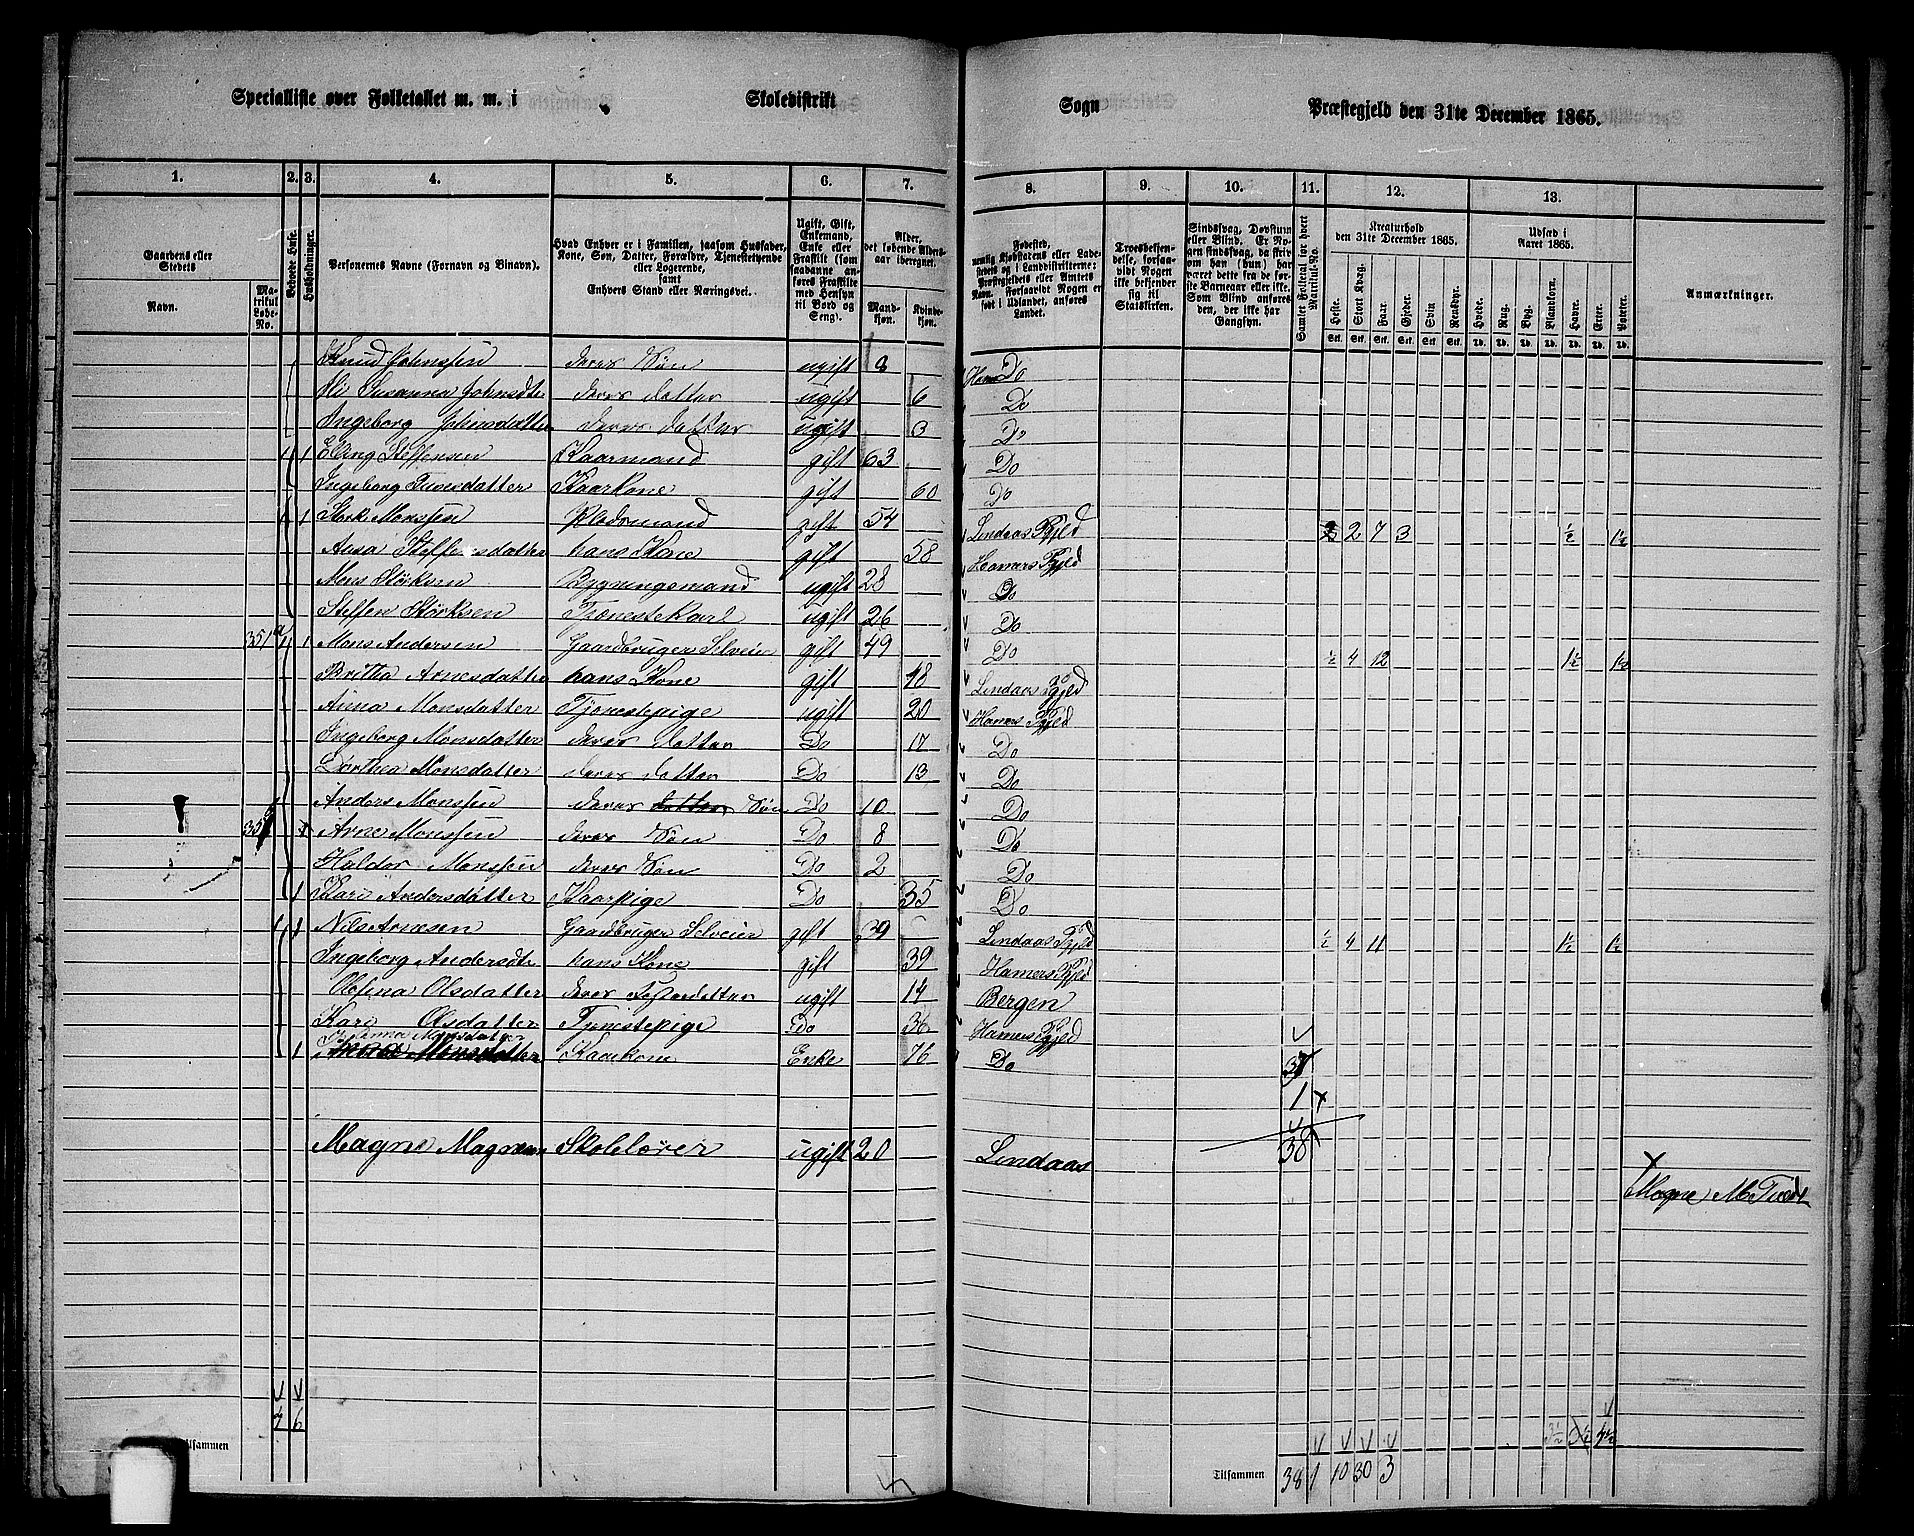 Specialliste over Folketallet m. m. i Skoledistrikt Sogn Præstegjeld den 31te December 1865.
1. 2. 3. 4. 5. 6. 7. 8. 9. 10. 11. 12. 13.
Gaardens eller Stedets
Navn.
Matrikul Løbe-No.
Beboede Huse.
Husholdninger.
Personernes Navne (Fornavn og Binavn).
Hvad Enhver er i Familien, saasom Husfader, Kone, Søn, Datter, Forældre, Tjenestetyende eller Logerende, samt Enhvers Stand eller Næringsvei.
Ugift, Gift, Enkemand, Enke eller Fraskilt (som saadanne anføres Fraskilte med Hensyn til Bord og Seng).
Alder, det løbende Alders-aar iberegnet.
Mand-kjøn. Kvinde-kjøn.
Fødested, nemlig Kjøbstadens eller Ladestedets og i Landdistrikterne: Præstegjeldets eller Amtets Navn. Forsaavidt Nogen er født i Udlandet, anføres Landet.
Troesbekjendelse, forsaavidt Nogen ikke bekjender sig til Statskirken.
Sindssvag, Døvstum eller Blind. Er Nogen sindssvag, da skriv om han (hun) har været dette fra de første Barneaar eller ikke. Som Blind anføres den, der ikke har Gangsyn.
Samlet Folketal for hvert Matrikul-No.
Kreaturhold den 31te December 1865.
Heste. Stort Kvæg. Faar. Gjeder. Svin Rensdyr.
Stk. Stk. Stk. Stk. Stk. Stk.
Udsæd i Aaret 1865.
Hvede. Rug. Byg. Blandkorn. Havre. Erter. Poteter.
Td. Td. Td. Td. Td. Td. Td.
Anmærkninger.
Knud Johnssen deres Søn ugift 8 Do
Susanna Johnsdtr deres datter ugift 6 Do
Ingeborg Johnsdatter deres datter ugift 3 Do
1 Elling Steffensen Kaarmand gift 63 Do
Ingeborg Knudsdatter Kaarkone gift 60 Do
1 1 Størk Monssen gift 54 Lindaas Pgjeld 2 7 3 ½ 1½
Anna Steffensdatter hans Kone gift 58 Hamers Pgjeld
Mons Størksen Bygningsmand ugift 28 Do
Steffen Størksen Tjenestekarl ugift 26 Do
351a 1 1 Mons Andersen Gaardbruger Selveier gift 49 Do ½ 4 12 1½ 1½
Britha Arnesdatter hans Kone gift 48 Lindaas Pgjeld
Anna Monsdatter Tjenestepige ugift 20 Hamers Pgjeld
Ingeborg Monsdatter deres datter Do 17 Do
Dorthea Monsdatter deres datter Do 13 Do
Anders Monssen deres Søn Do 10 Do
Arne Monssen deres Søn Do 8 Do
Haldor Monssen deres Søn Do 2 Do
1 Kari Andersdatter Kaarpige Do 35 Do
1 1 Nils Arnesen Gaardbruger Selveier gift 39 Lindaas Pgjeld ½ 4 11 1½ 1½
Ingeborg Andersdtr hans Kone gift 39 Hamers Pgjeld
Olefina Olsdatter deres Søsterdatter ugift 14 Bergen
Kari Olsdatter Tjenestepige Do 36 Hamers Pgjeld
Monsdatter
1 Monsdatter Kaarkone Enke 76 Do 37
1 x
Magne Magnesen Skolelærer ugift 20 Lindaas 38
x
Magne M. Tvedt
7 6
Tilsammen
Tilsammen 38 1 10 30 3